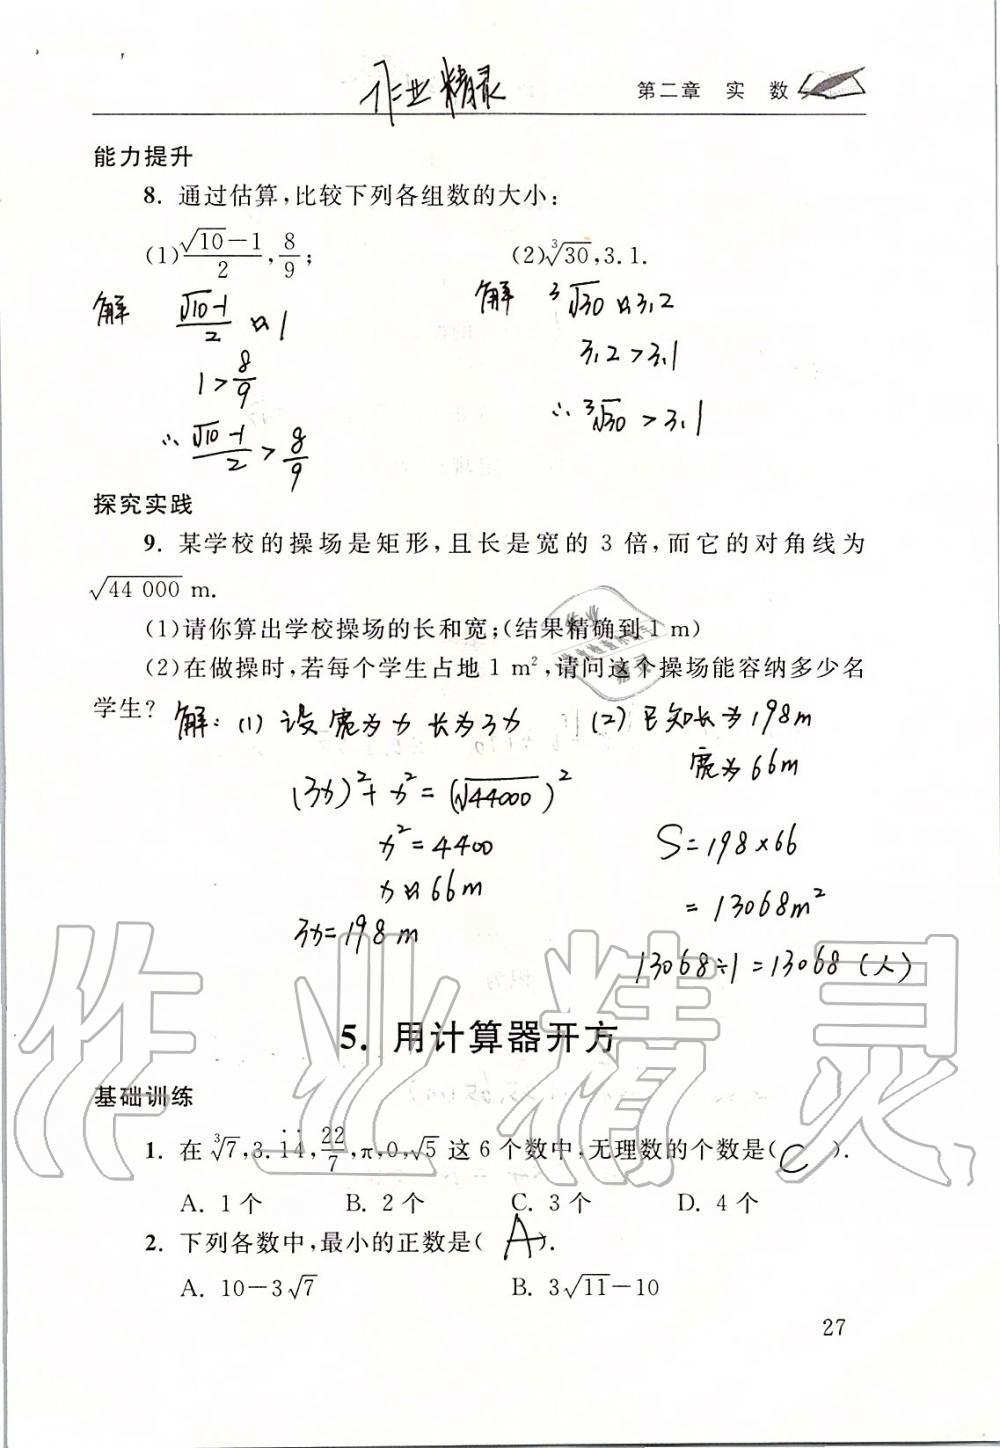 作业精灵
第二章 实 数
能力提升
8. 通过估算,比较下列各组数的大小:
(1)(√10−1)/2, 8/9; (2)∛30, 3.1.
解 (√10−1)/2 ≈ 1
1 > 8/9
∴ (√10−1)/2 > 8/9
解 ∛30 ≈ 3.2
3.2 > 3.1
∴ ∛30 > 3.1
探究实践
9. 某学校的操场是矩形,且长是宽的 3 倍,而它的对角线为
√44 000 m.
(1)请你算出学校操场的长和宽;(结果精确到 1 m)
(2)在做操时,若每个学生占地 1 m²,请问这个操场能容纳多少名
学生?
解:(1) 设宽为x 长为3x
(3x)² + x² = (√44000)²
x² = 4400
x ≈ 66m
3x = 198m
(2) 已知长为198m
宽为66m
S = 198×66
= 13068m²
13068÷1 = 13068 (人)
5. 用计算器开方
基础训练
1. 在 ∛7, 3.1̇4̇, 22/7, π, 0, √5 这 6 个数中,无理数的个数是( C ).
A. 1 个 B. 2 个 C. 3 个 D. 4 个
2. 下列各数中,最小的正数是( A ).
A. 10−3√7 B. 3√11−10
27
作业精灵